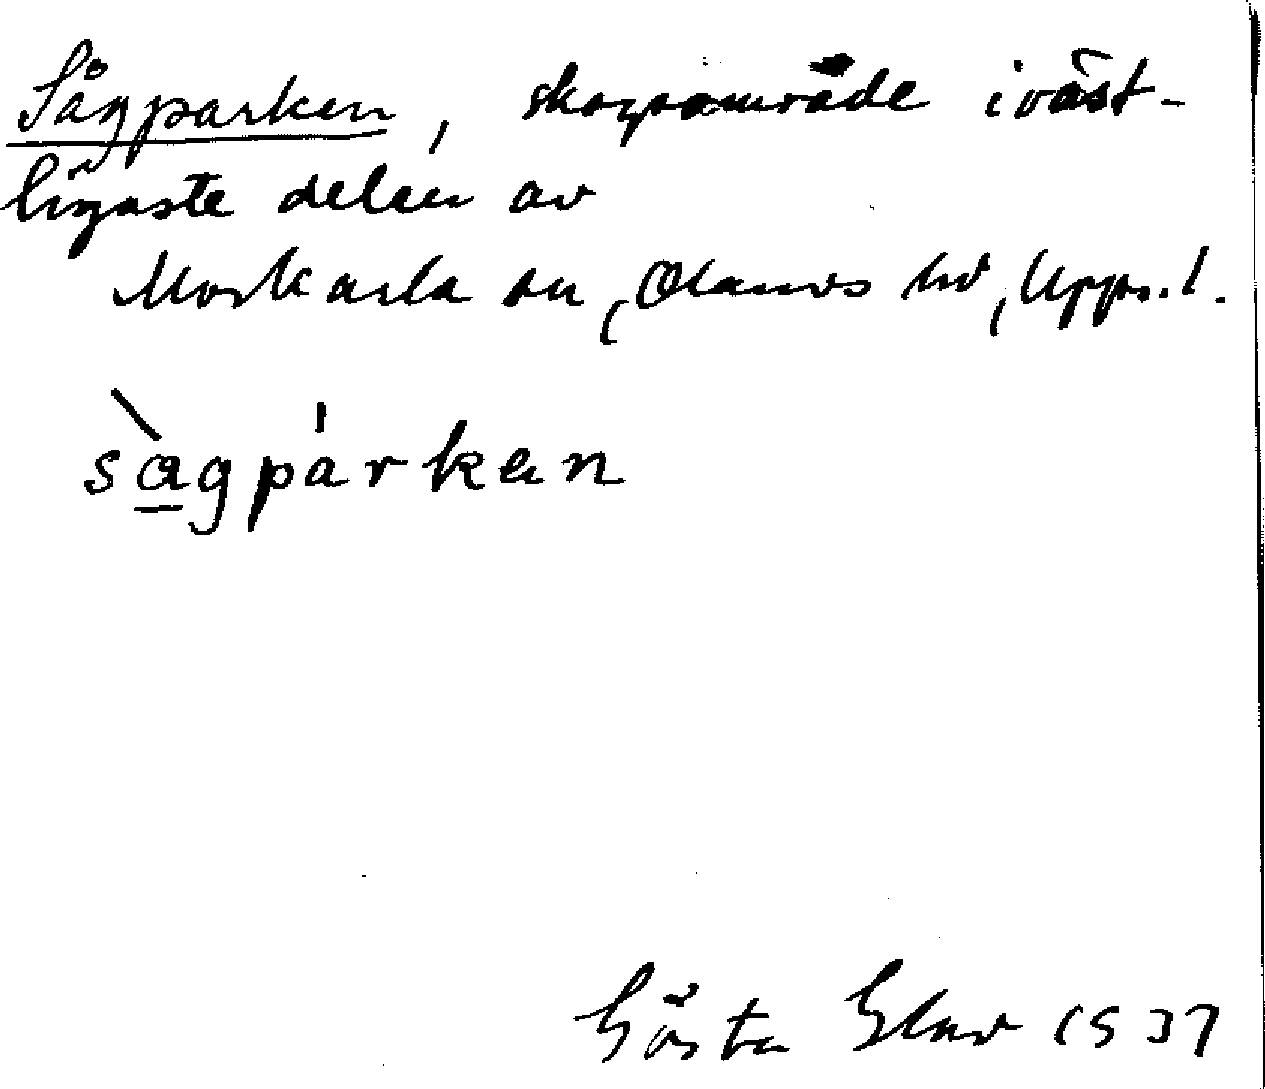 Sågparken, skogsområde i väst-
ligaste delen av
Morkarla sn, Olands hd, Upps. l.
sàgpárkan
Gösta 1937